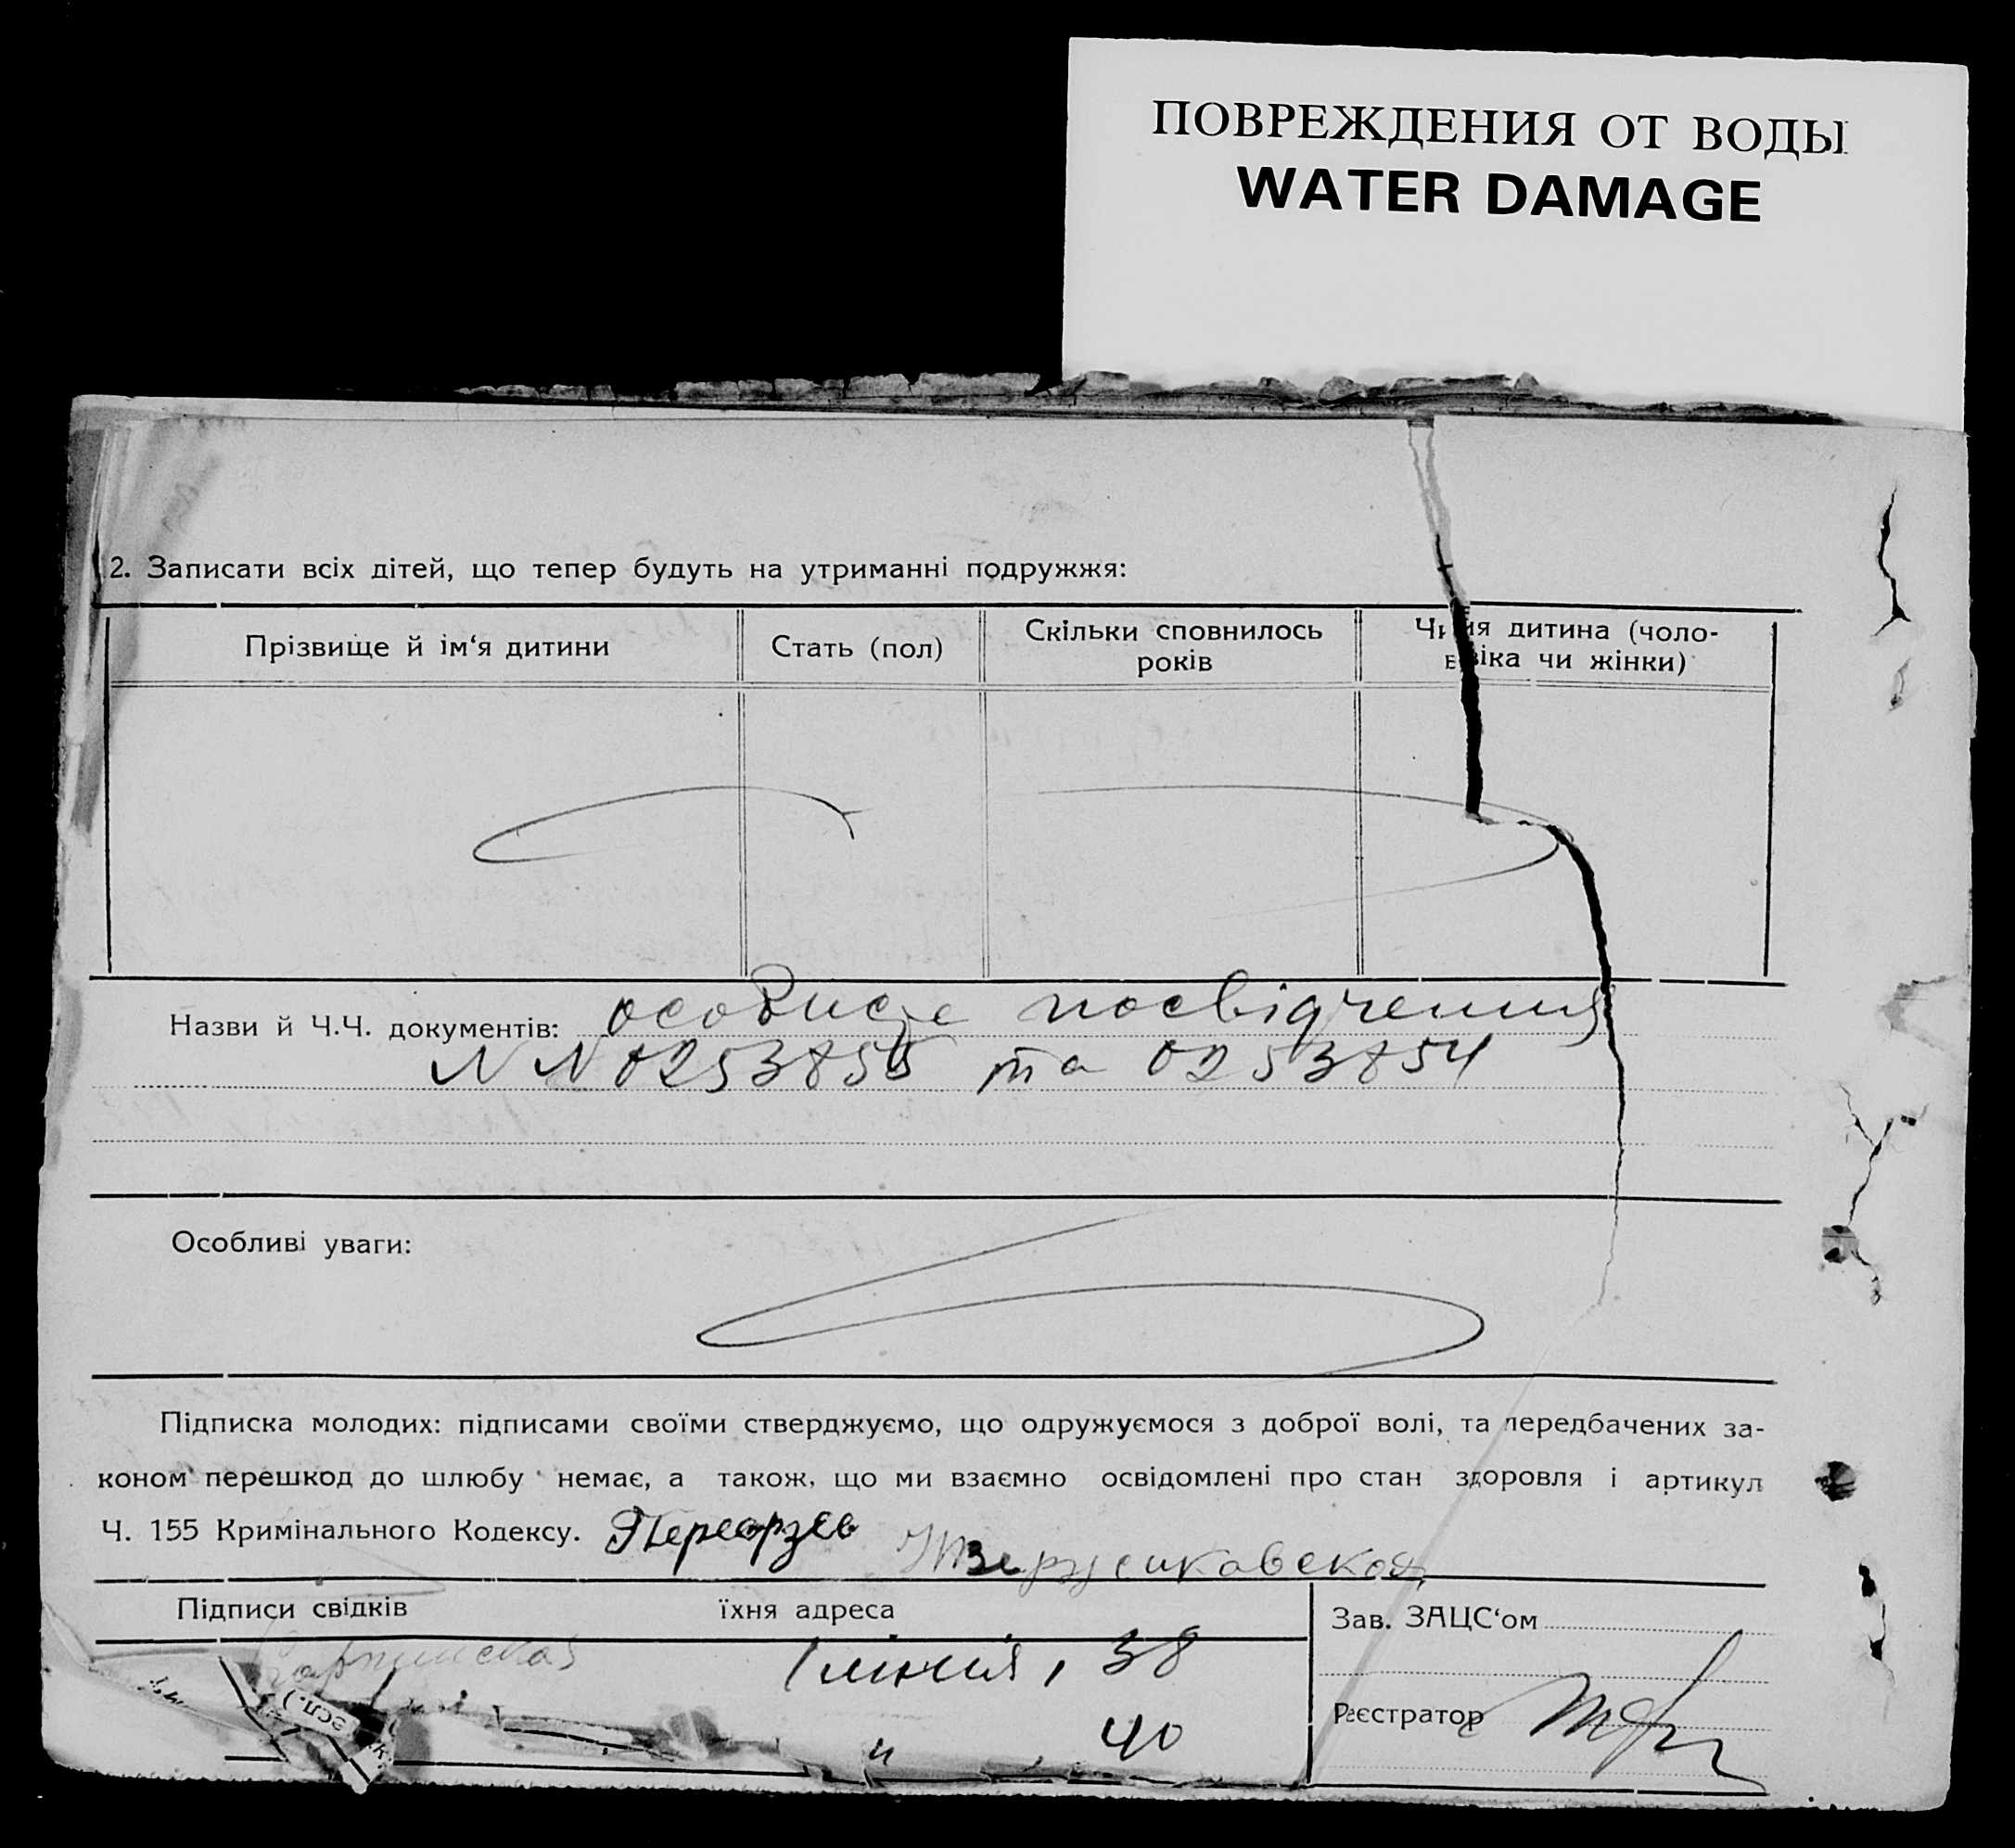 ПОВРЕЖДЕНИЯ ОТ ВОДЫ
WATER DAMAGE
2. Записати всіх дітей, що тепер будуть на утриманні подружжя:
Прізвище й ім‘я дитини
Стать (пол)
Скільки сповнилось
років
Чия дитина (чоло-
віка чи жінки)
Назви й Ч.Ч. документів: особисте посвідчення
NN 0253855 та 0253854
Особливі уваги:
Підписка молодих: підписами своїми стверджуємо, що одружуємося з доброї волі, та передбачених за-
коном перешкод до шлюбу немає, а також, що ми взаємно освідомлені про стан здоровля і артикул
Ч. 155 Кримінального Кодексу.
Підписи свідків
їхня адреса
1 лінія, 38
" 40
Зав. ЗАЦС‘ом
Реєстратор